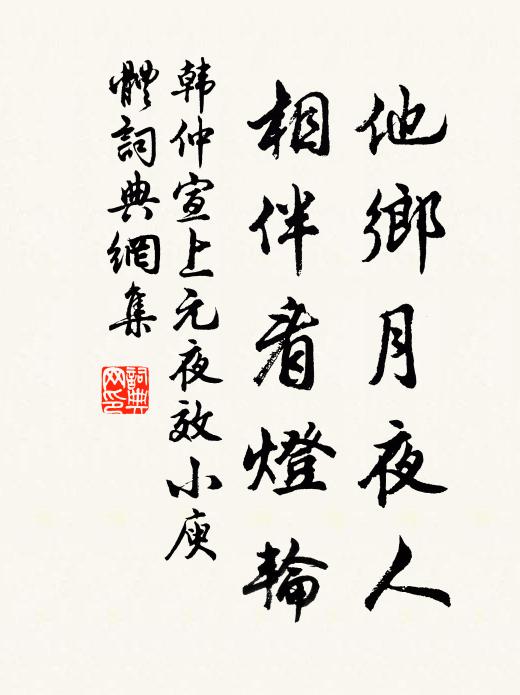 他鄉月夜人
相伴看燈輪
韩仲宣上元夜效小庾
體詞典網集
詞典
网印